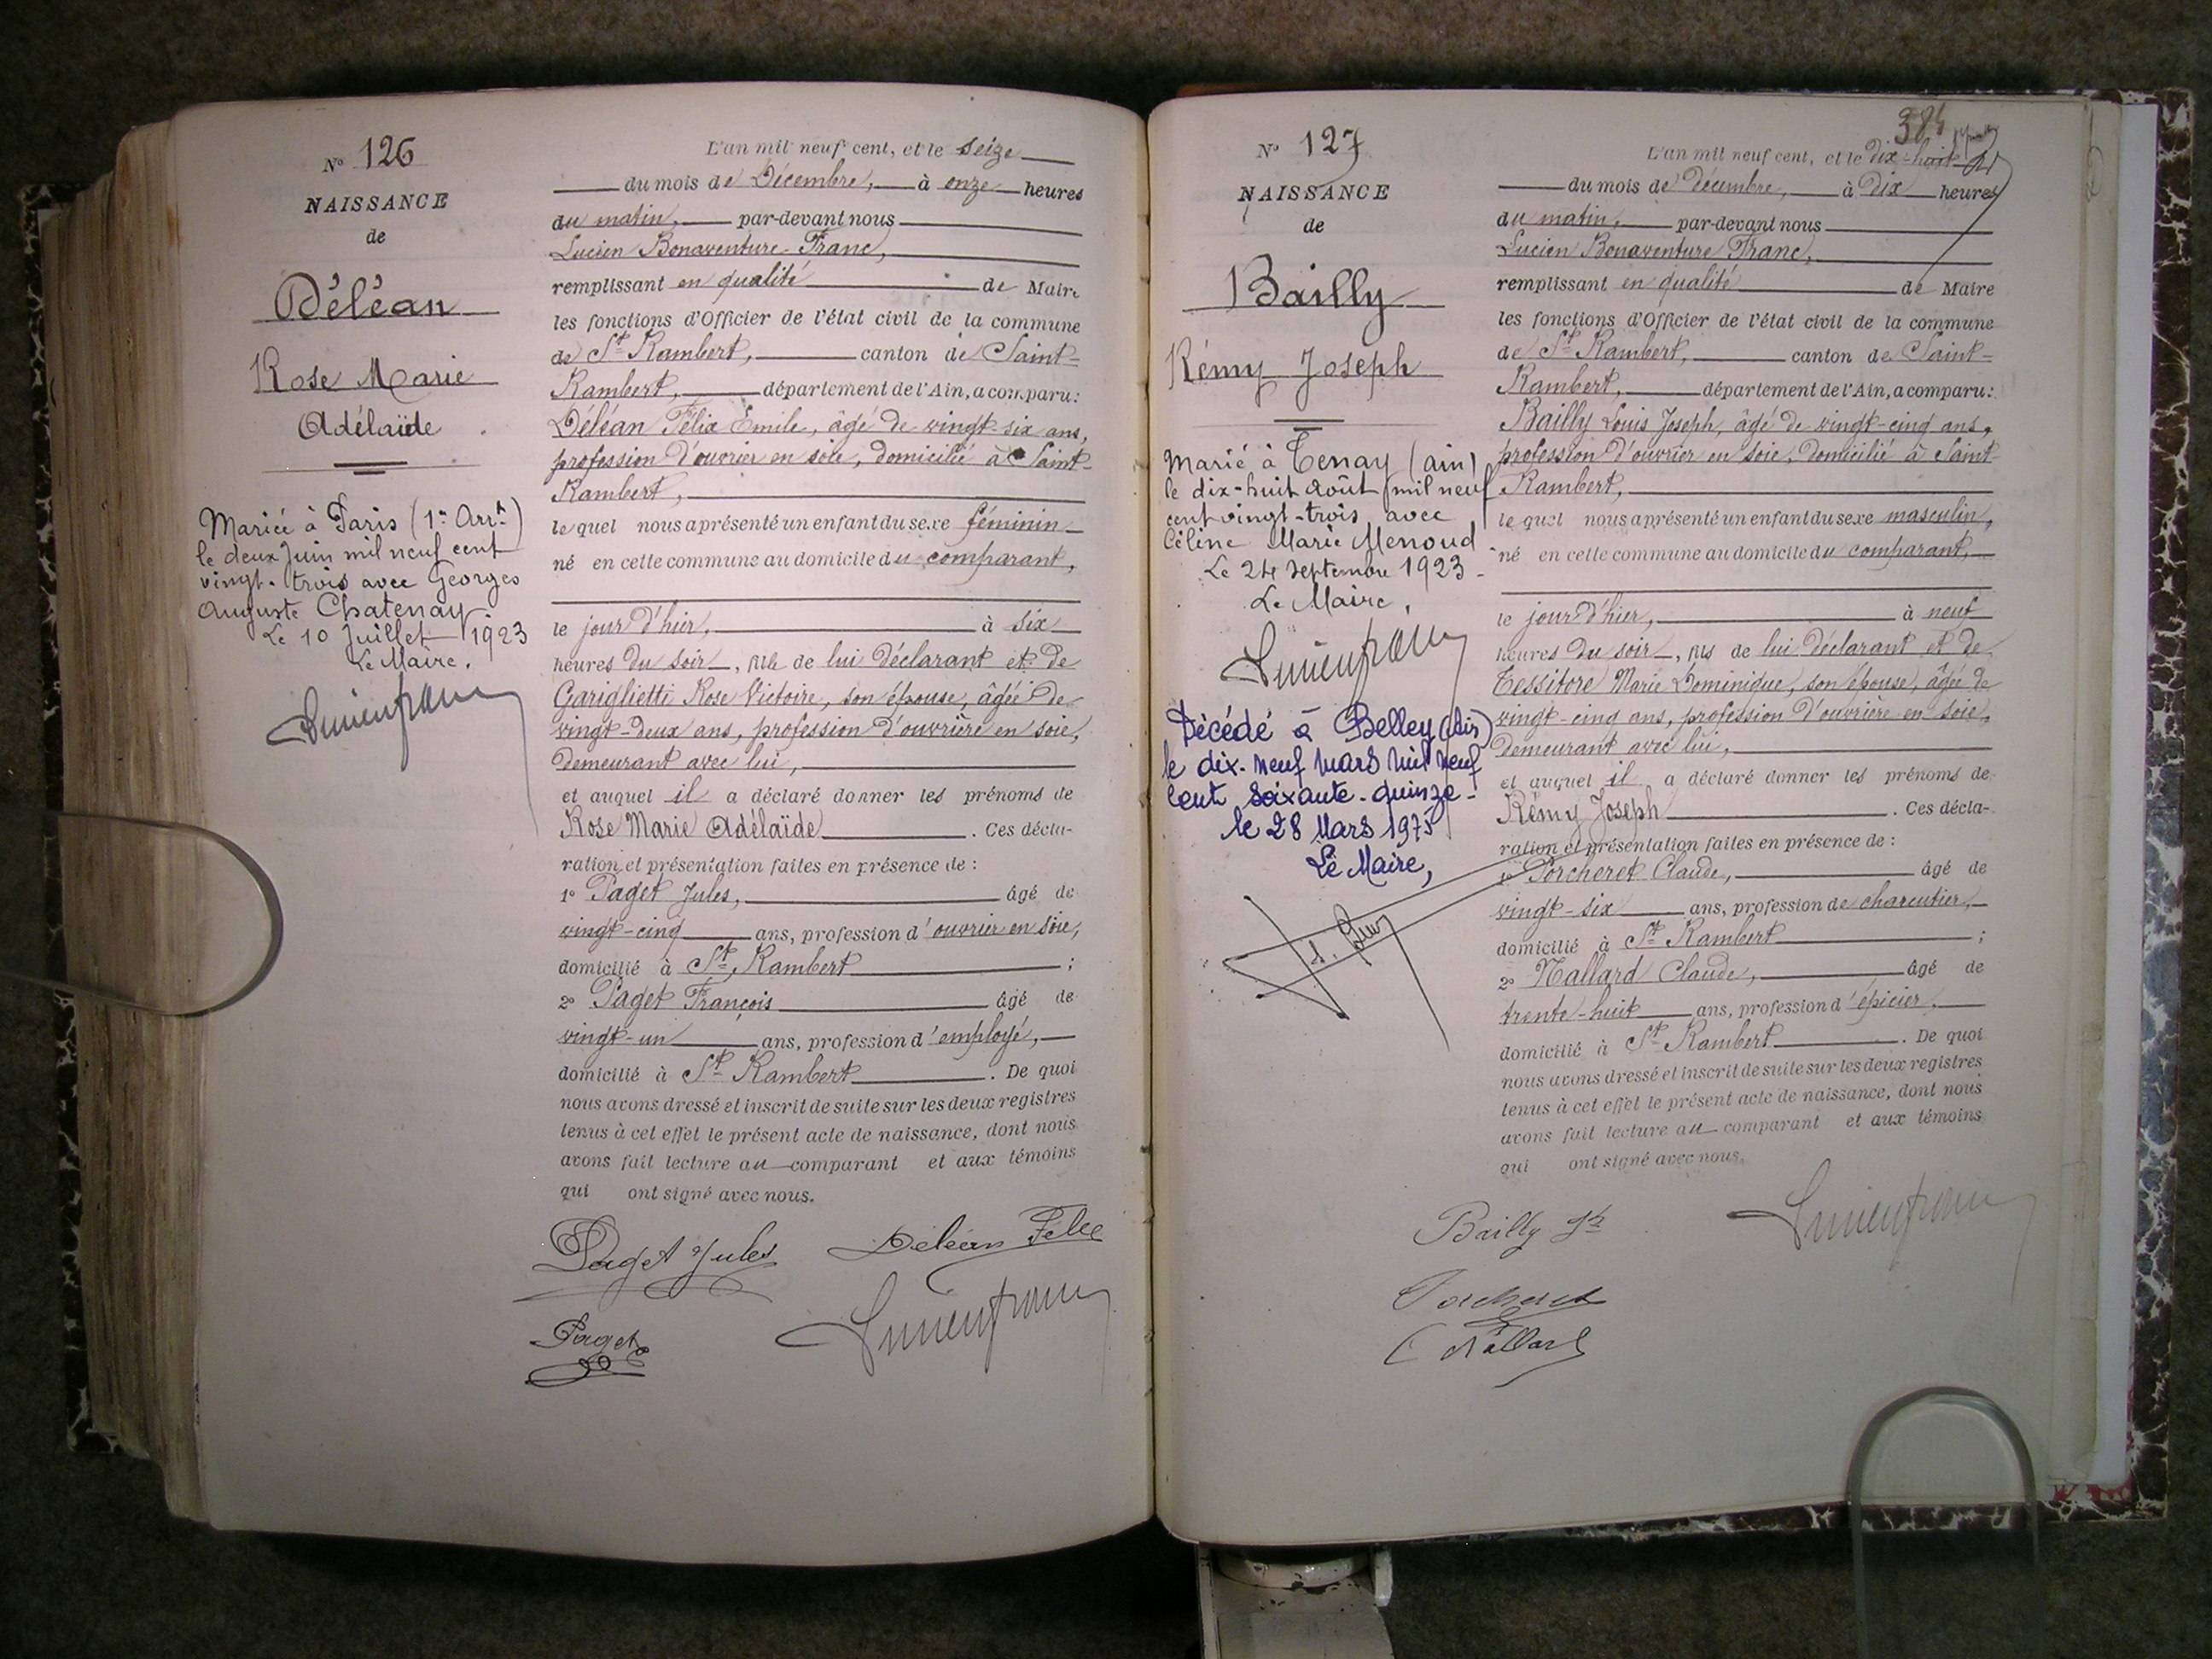 N° 126
NAISSANCE
de
Déléan
Rose Marie
Adélaïde
Mariée à Paris (1er Arrt)
le deux Juin mil neuf cent
vingt-trois avec Georges
Auguste Chatenay.
Le 10 Juillet 1923
Le Maire.
Lucien Franc
L'an mil neuf cent, et le seize
du mois de Décembre, à onze heures
du matin, par-devant nous
Lucien Bonaventure Franc,
remplissant en qualité de Maire
les fonctions d'Officier de l'état civil de la commune
de St Rambert, canton de Saint-
Rambert, département de l'Ain, a comparu:
Déléan Félix Emile, âgé de vingt-six ans,
profession d'ouvrier en soie, domicilié à Saint-
Rambert,
lequel nous a présenté un enfant du sexe féminin
né en cette commune au domicile du comparant,
le jour d'hier, à six
heures du soir, fille de lui déclarant et de
Gariglietti Rose Victoire, son épouse, âgée de
vingt-deux ans, profession d'ouvrière en soie,
demeurant avec lui,
et auquel il a déclaré donner les prénoms de
Rose Marie Adélaïde. Ces décla-
ration et présentation faites en présence de :
1° Paget Jules, âgé de
vingt-cinq ans, profession d'ouvrier en soie,
domicilié à St Rambert ;
2° Paget François âgé de
vingt-un ans, profession d'employé,
domicilié à St Rambert. De quoi
nous avons dressé et inscrit de suite sur les deux registres
tenus à cet effet le présent acte de naissance, dont nous
avons fait lecture au comparant et aux témoins
qui ont signé avec nous.
Paget Jules Déléan Félix
Paget Lucien Franc
384
N° 127
NAISSANCE
de
Bailly
Rémy Joseph
Marié à Tenay (Ain)
le dix-huit août mil neuf
cent vingt-trois avec
Céline Marie Menoud
Le 24 septembre 1923
Le Maire,
Lucien Franc
Décédé à Belley (Ain)
le dix-neuf mars mil neuf
cent soixante-quinze
le 28 Mars 1975
Le Maire,
L'an mil neuf cent, et le dix-huit
du mois de décembre, à dix heures
du matin, par-devant nous
Lucien Bonaventure Franc,
remplissant en qualité de Maire
les fonctions d'Officier de l'état civil de la commune
de St Rambert, canton de Saint-
Rambert, département de l'Ain, a comparu:
Bailly Louis Joseph, âgé de vingt-cinq ans,
profession d'ouvrier en soie, domicilié à Saint-
Rambert,
lequel nous a présenté un enfant du sexe masculin,
né en cette commune au domicile du comparant,
le jour d'hier, à neuf
heures du soir, fils de lui déclarant et de
Tessitore Marie Dominique, son épouse, âgée de
vingt-cinq ans, profession d'ouvrière en soie,
demeurant avec lui,
et auquel il a déclaré donner les prénoms de
Rémy Joseph. Ces décla-
ration et présentation faites en présence de :
1° Porcheret Claude, âgé de
vingt-six ans, profession de charcutier,
domicilié à St Rambert ;
2° Mallard Claude, âgé de
trente-huit ans, profession d'épicier,
domicilié à St Rambert. De quoi
nous avons dressé et inscrit de suite sur les deux registres
tenus à cet effet le présent acte de naissance, dont nous
avons fait lecture au comparant et aux témoins
qui ont signé avec nous.
Bailly Jh Lucien Franc
Porcheret
C Mallard